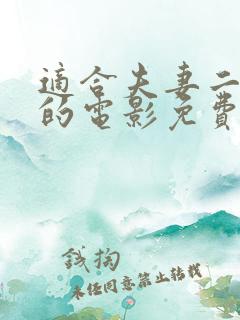 適合夫妻二
的電影免費
錢掏
未经同意禁止转载